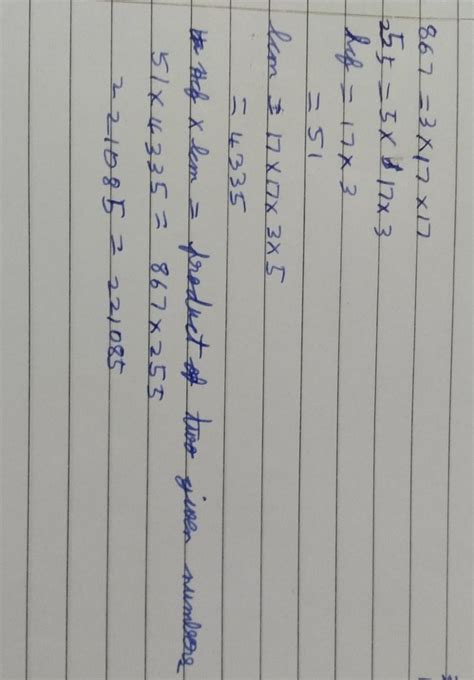 867 = 3×17×17
255 = 5×17×3
hcf = 17×3
= 51
lcm = 17×17×3×5
= 4335
hcf × lcm = product of two given numbers
51×4335 = 867×255
= 221085 = 221085